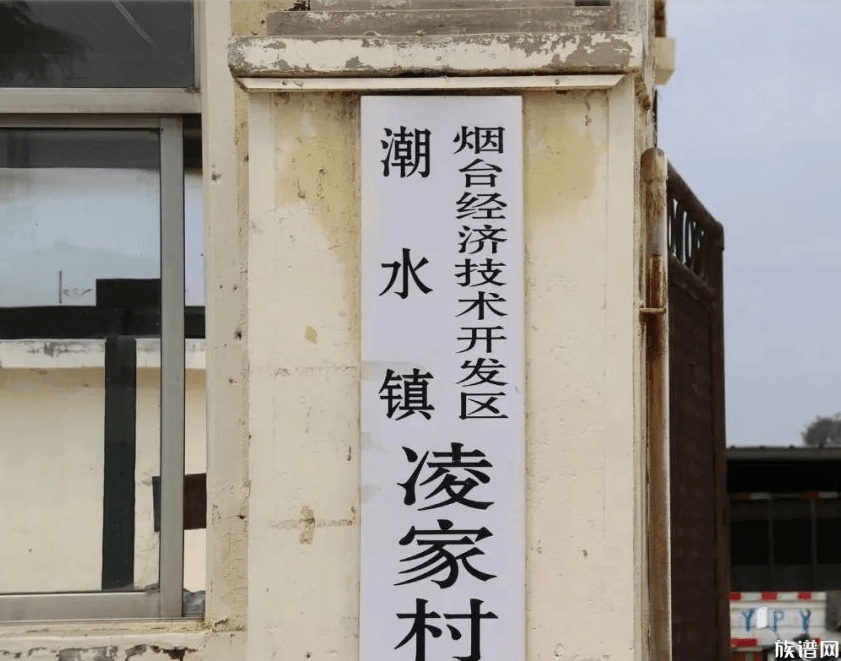 烟台经济技术开发区
潮水镇
凌家村
YPY
族谱网